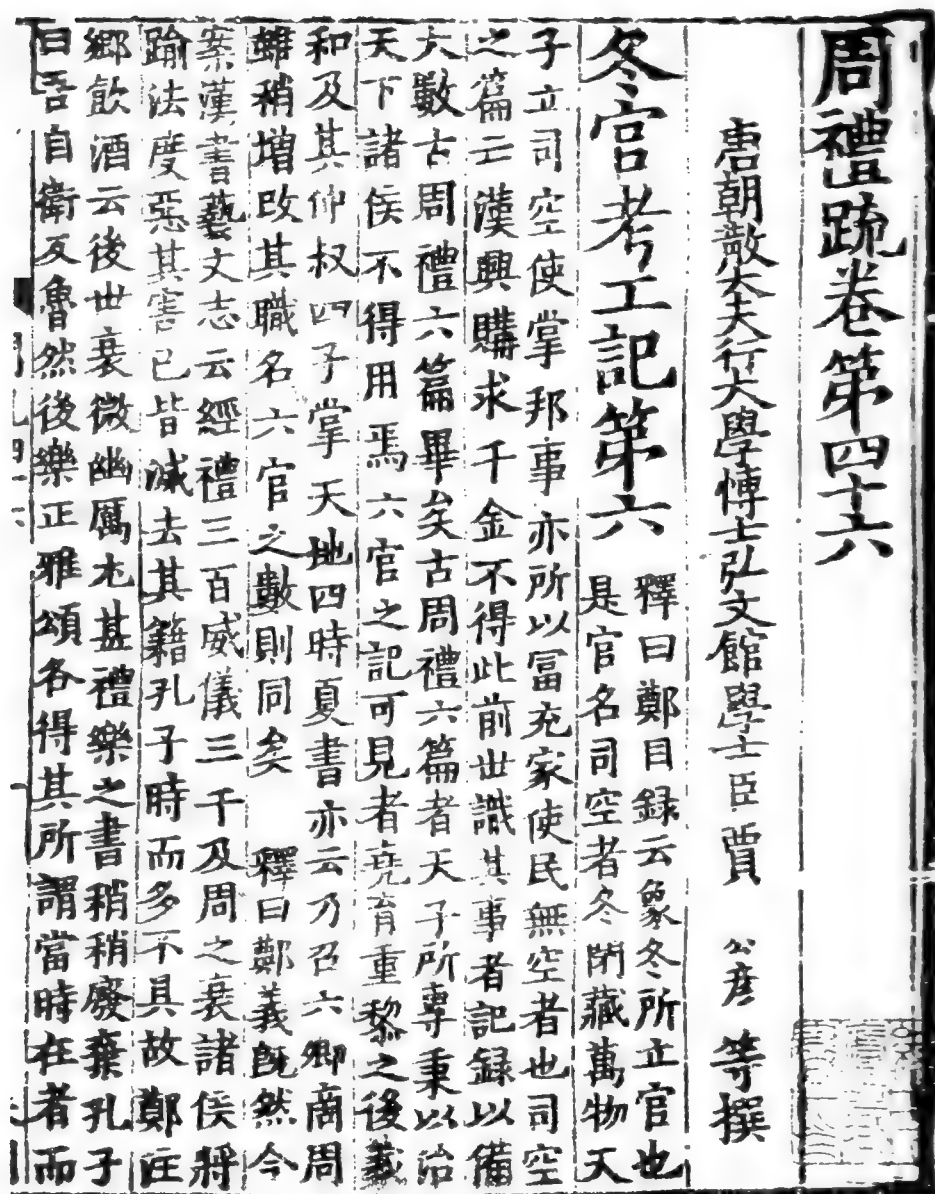 周禮疏卷第四十六
唐朝散大夫行大學博士弘文館學士臣賈 公彦 等撰
冬官考工記第六
釋曰鄭目録云象冬所立官也
是官名司空者冬閉藏萬物天
子立司空使掌邦事亦所以富充家使民無空者也司空
之篇亡漢興購求千金不得此前世識其事者記録以備
大數古周禮六篇畢矣古周禮六篇者天子所專秉以治
天下諸侯不得用焉六官之記可見者堯育重黎之後羲
和及其仲叔四子掌天地四時夏書亦云乃召六卿商周
雖稍增改其職名六官之數則同矣 釋曰鄭義旣然今
案漢書藝文志云經禮三百威儀三千及周之衰諸侯將
踰法度惡其害已皆滅去其籍孔子時而多不具故鄭注
鄉飲酒云後世衰微幽厲尤甚禮樂之書稍稍廢棄孔子
曰吾自衛反魯然後樂正雅頌各得其所謂當時在者而